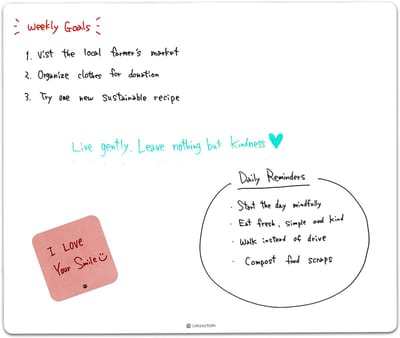 Weekly Goals
1. Vist the local farmer's market
2. Organize clothes for donation
3. Try one new sustainable recipe
Live gently. Leave nothing but kindness
Daily Reminders
· Start the day mindfully
· Eat fresh, simple and kind
· Walk instead of drive
· Compost food scraps
I Love
Your Smile